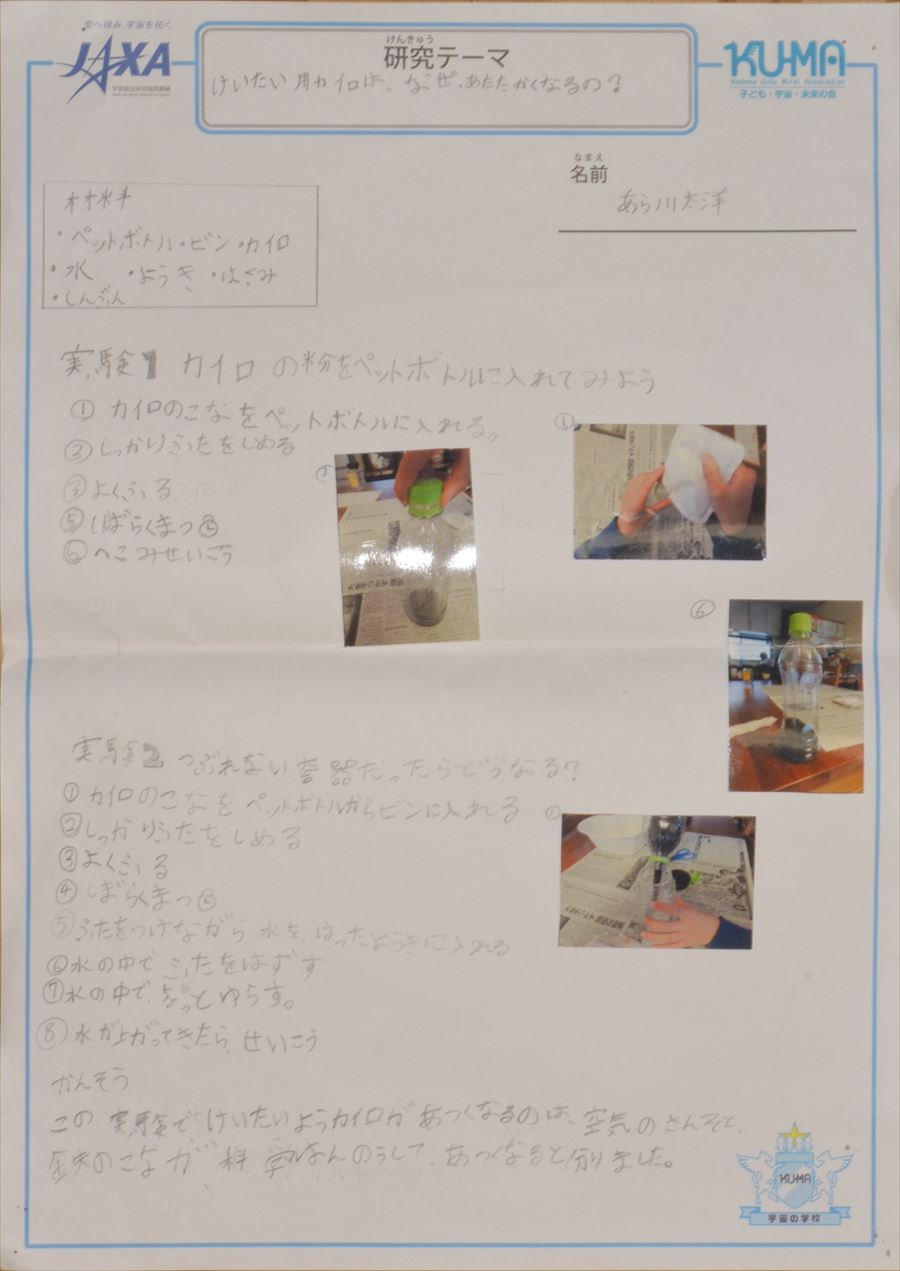 空へ挑み、宇宙を拓く
JAXA
宇宙航空研究開発機構
Japan Aerospace Exploration Agency
けんきゅう
研究テーマ
けいたい用カイロは、なぜ、あたたかくなるの?
KU-MA
Kodomo Uchu Mirai Association
子ども・宇宙・未来の会
なまえ
名前
あら川太洋
材料
・ペットボトル・ビン・カイロ
・水 ・ようき ・はさみ
・しんぶん
実験1 カイロの粉をペットボトルに入れてみよう
① カイロのこなをペットボトルに入れる。
② しっかりふたをしめる
③ よくふる
⑤ しばらくまつ
⑥ へこみせいこう
①
②
⑥
実験2 つぶれない容器だったらどうなる?
① カイロのこなをペットボトルからビンに入れる
② しっかりふたをしめる
③ よくふる
④ しばらくまつ
⑤ ふたをつけながら水を、はったようきに入れる
⑥ 水の中でふたをはずす
⑦ 水の中で、ちょっとゆらす。
⑧ 水が上がってきたら、せいこう
①
かんそう
この実験でけいたいようカイロがあつくなるのは、空気のさんそと、
鉄のこなが、科学はんのうして、あつくなると分りました。
KU-MA
宇宙の学校